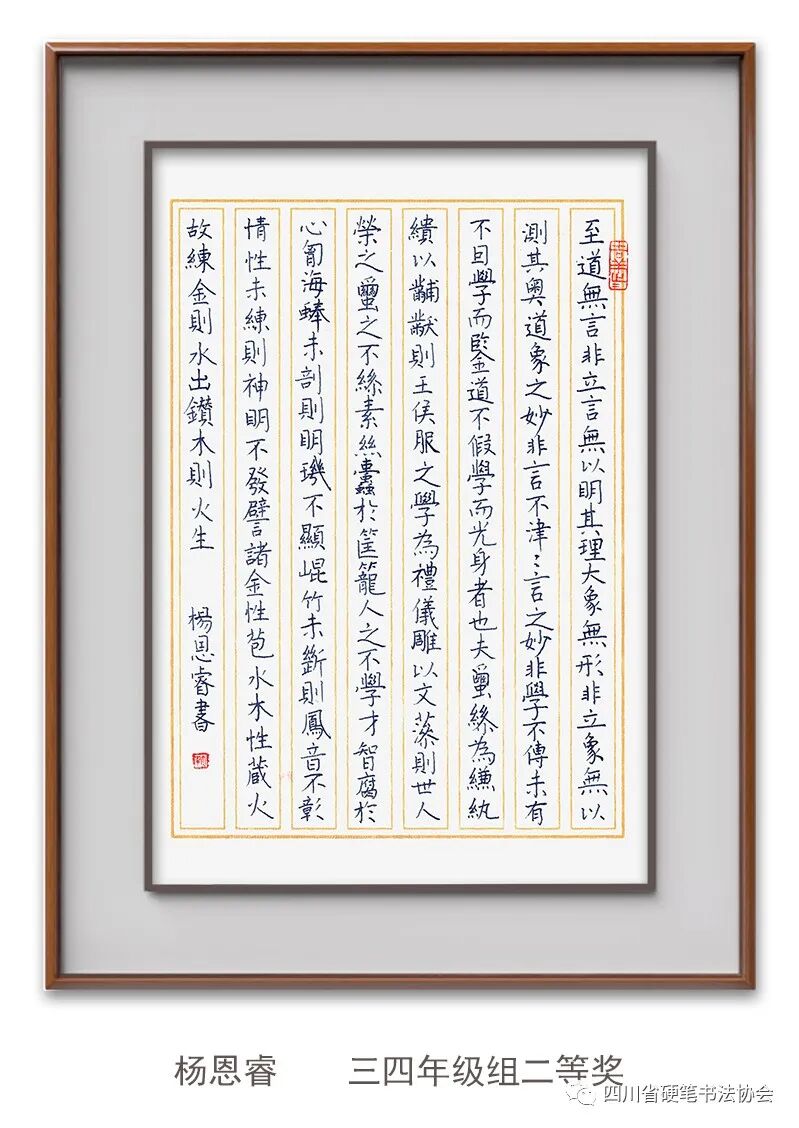 至道無言非立言無以明其理大象無形非立象無以
測其奧道象之妙非言不津〻言之妙非學不傳未有
不因學而鋻道不假學而光身者也夫蠒絲為縑紈
繢以黼黻則王侯服之學為禮儀雕以文藻則世人
榮之蠒之不絲素絲蠹於筐籠人之不學才智腐於
心匈海蜯未剖則明璣不顯崐竹未斷則鳳音不彰
情性未練則神明不發譬諸金性苞水木性蔵火
故練金則水出鑽木則火生 楊恩睿書
杨恩睿 三四年级组二等奖
四川省硬笔书法协会